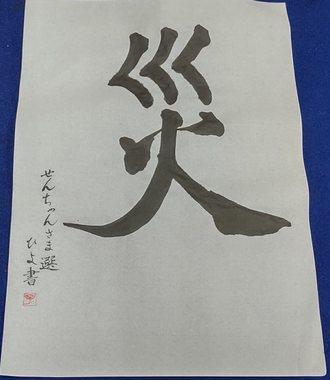 災
せんちゃんさま選
ひよ書